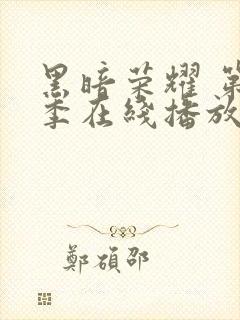 黑暗荣耀 第
季在线播放
鄭碩邵